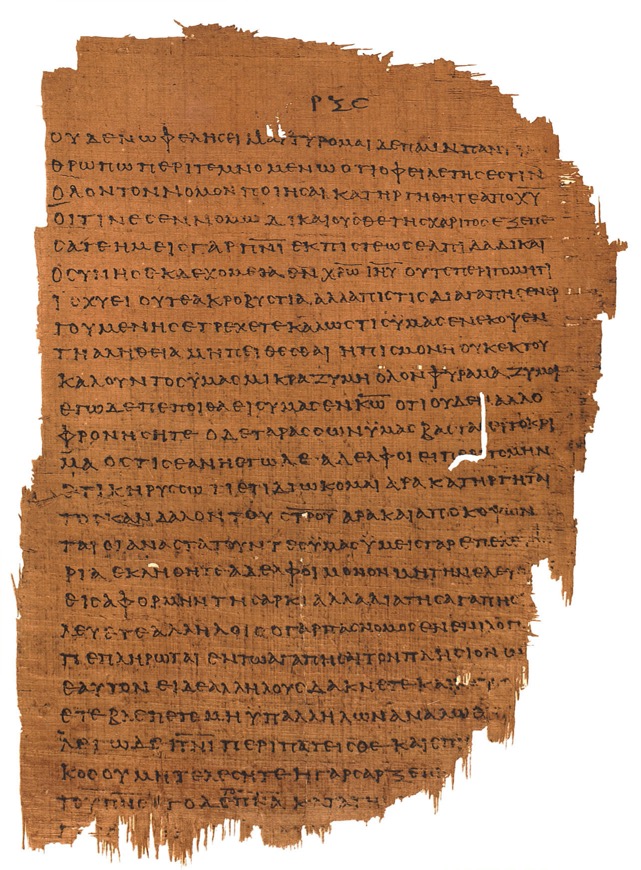 ΡΞϹ
ΟΥΔΕΝ ΩΦΕΛΗϹΕΙ ΜΑΡΤΥΡΟΜΑΙ ΔΕ ΠΑΛΙΝ ΠΑΝ
ΘΡΩΠΩ ΠΕΡΙΤΕΜΝΟΜΕΝΩ ΟΤΙ ΟΦΕΙΛΕΤΗϹ ΕϹΤΙΝ
ΟΛΟΝ ΤΟΝ ΝΟΜΟΝ ΠΟΙΗϹΑΙ ΚΑΤΗΡΓΗΘΗΤΕ ΑΠΟ Χ̅Υ̅
ΟΙΤΙΝΕϹ ΕΝ ΝΟΜΩ ΔΙΚΑΙΟΥϹΘΕ ΤΗϹ ΧΑΡΙΤΟϹ ΕΞΕΠΕ
ϹΑΤΕ ΗΜΕΙϹ ΓΑΡ Π̅Ν̅Ι̅ ΕΚ ΠΙϹΤΕΩϹ ΕΛΠΙΔΑ ΔΙΚΑΙ
ΟϹΥΝΗϹ ΕΚΔΕΧΟΜΕΘΑ ΕΝ Χ̅Ρ̅Ω̅ Ι̅Η̅Υ̅ ΟΥΤΕ ΠΕΡΙΤΟΜΗ ΤΙ
ΙϹΧΥΕΙ ΟΥΤΕ ΑΚΡΟΒΥϹΤΙΑ ΑΛΛΑ ΠΙϹΤΙϹ ΔΙ ΑΓΑΠΗϹ ΕΝΕΡ
ΓΟΥΜΕΝΗϹ ΕΤΡΕΧΕΤΕ ΚΑΛΩϹ ΤΙϹ ΥΜΑϹ ΕΝΕΚΟΨΕΝ
ΤΗ ΑΛΗΘΕΙΑ ΜΗ ΠΕΙΘΕϹΘΑΙ Η ΠΙϹΜΟΝΗ ΟΥΚ ΕΚ ΤΟΥ
ΚΑΛΟΥΝΤΟϹ ΥΜΑϹ ΜΙΚΡΑ ΖΥΜΗ ΟΛΟΝ ΦΥΡΑΜΑ ΖΥΜΟΙ
ΕΓΩ ΔΕ ΠΕΠΟΙΘΑ ΕΙϹ ΥΜΑϹ ΕΝ Κ̅Ω̅ ΟΤΙ ΟΥΔΕΝ ΑΛΛΟ
ΦΡΟΝΗϹΗΤΕ Ο ΔΕ ΤΑΡΑϹϹΩΝ ΥΜΑϹ ΒΑϹΤΑϹΕΙ ΤΟ ΚΡΙ
ΜΑ ΟϹΤΙϹ ΕΑΝ Η ΕΓΩ ΔΕ ΑΔΕΛΦΟΙ ΕΙ ΠΕΡΙΤΟΜΗΝ
ΕΤΙ ΚΗΡΥϹϹΩ ΤΙ ΕΤΙ ΔΙΩΚΟΜΑΙ ΑΡΑ ΚΑΤΗΡΓΗΤΑΙ
ΤΟ ϹΚΑΝΔΑΛΟΝ ΤΟΥ Ϲ̅Τ̅Ρ̅Ο̅Υ̅ ΑΡΑ ΚΑΙ ΑΠΟΚΟΨΩΝ
ΤΑΙ ΟΙ ΑΝΑϹΤΑΤΟΥΝΤΕϹ ΥΜΑϹ ΥΜΕΙϹ ΓΑΡ ΕΠ ΕΛΕ
ΡΙΑ ΕΚΛΗΘΗΤΕ ΑΔΕΛΦΟΙ ΜΟΝΟΝ ΜΗ ΤΗΝ ΕΛΕΥ
ΕΙϹ ΑΦΟΡΜΗΝ ΤΗ ϹΑΡΚΙ ΑΛΛΑ ΔΙΑ ΤΗϹ ΑΓΑΠΗϹ
ΛΕΥΕΤΕ ΑΛΛΗΛΟΙϹ Ο ΓΑΡ ΠΑϹ ΝΟΜΟϹ ΕΝ ΕΝΙ ΛΟΓ
ΠΕΠΛΗΡΩΤΑΙ ΕΝ ΤΩ ΑΓΑΠΗϹΑΙ ΤΟΝ ΠΛΗϹΙΟΝ
ΕΑΥΤΟΝ ΕΙ ΔΕ ΑΛΛΗΛΟΥϹ ΔΑΚΝΕΤΕ ΚΑΙ
ΕΤΕ ΒΛΕΠΕΤΕ ΜΗ ΥΠ ΑΛΛΗΛΩΝ ΑΝΑΛΩΘ
ΛΕΓΩ ΔΕ Π̅Ν̅Ι̅ ΠΕΡΙΠΑΤΕΙΤΕ ΚΑΙ ΕΠ
ΚΟϹ ΟΥ ΜΗ ΤΕΛΕϹΗΤΕ Η ΓΑΡ ϹΑΡΞ
ΤΟΥ Π̅Ν̅Ϲ̅ ΤΟ ΔΕ Π̅Ν̅Α̅ ΚΑΤΑ ΤΗ